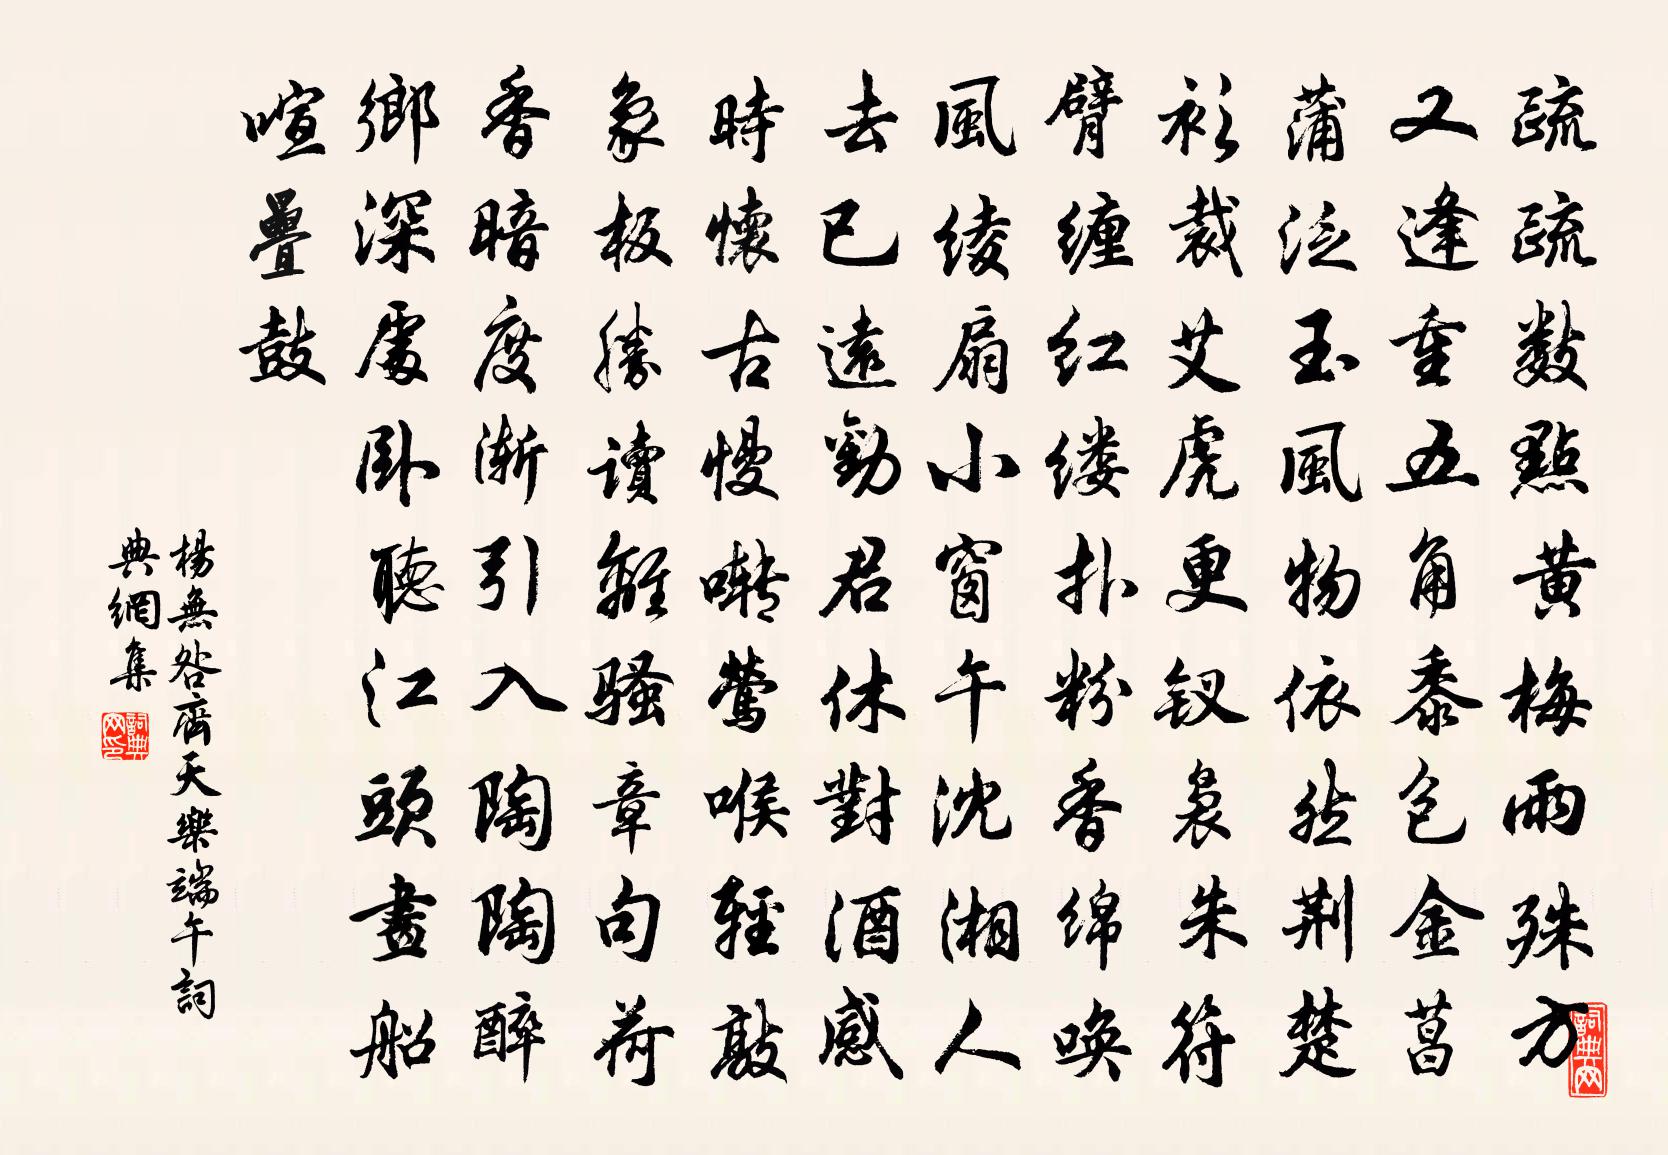 疏疏數點黄梅雨殊方
又逢重五角黍包金菖
蒲泛玉風物依然荆楚
衫裁艾虎更钗裊朱符
臂缠红缕扑粉香绵唤
風绫扇小窗午沈湘人
去已遠勸君休對酒感
時懷古慢囀鶯喉輕敲
象板勝讀離騷章句荷
香暗度渐引入陶陶醉
鄉深處卧聽江頭畫船
喧疊鼓
楊無咎齊天樂端午詞
典網集
詞典网印
詞典网